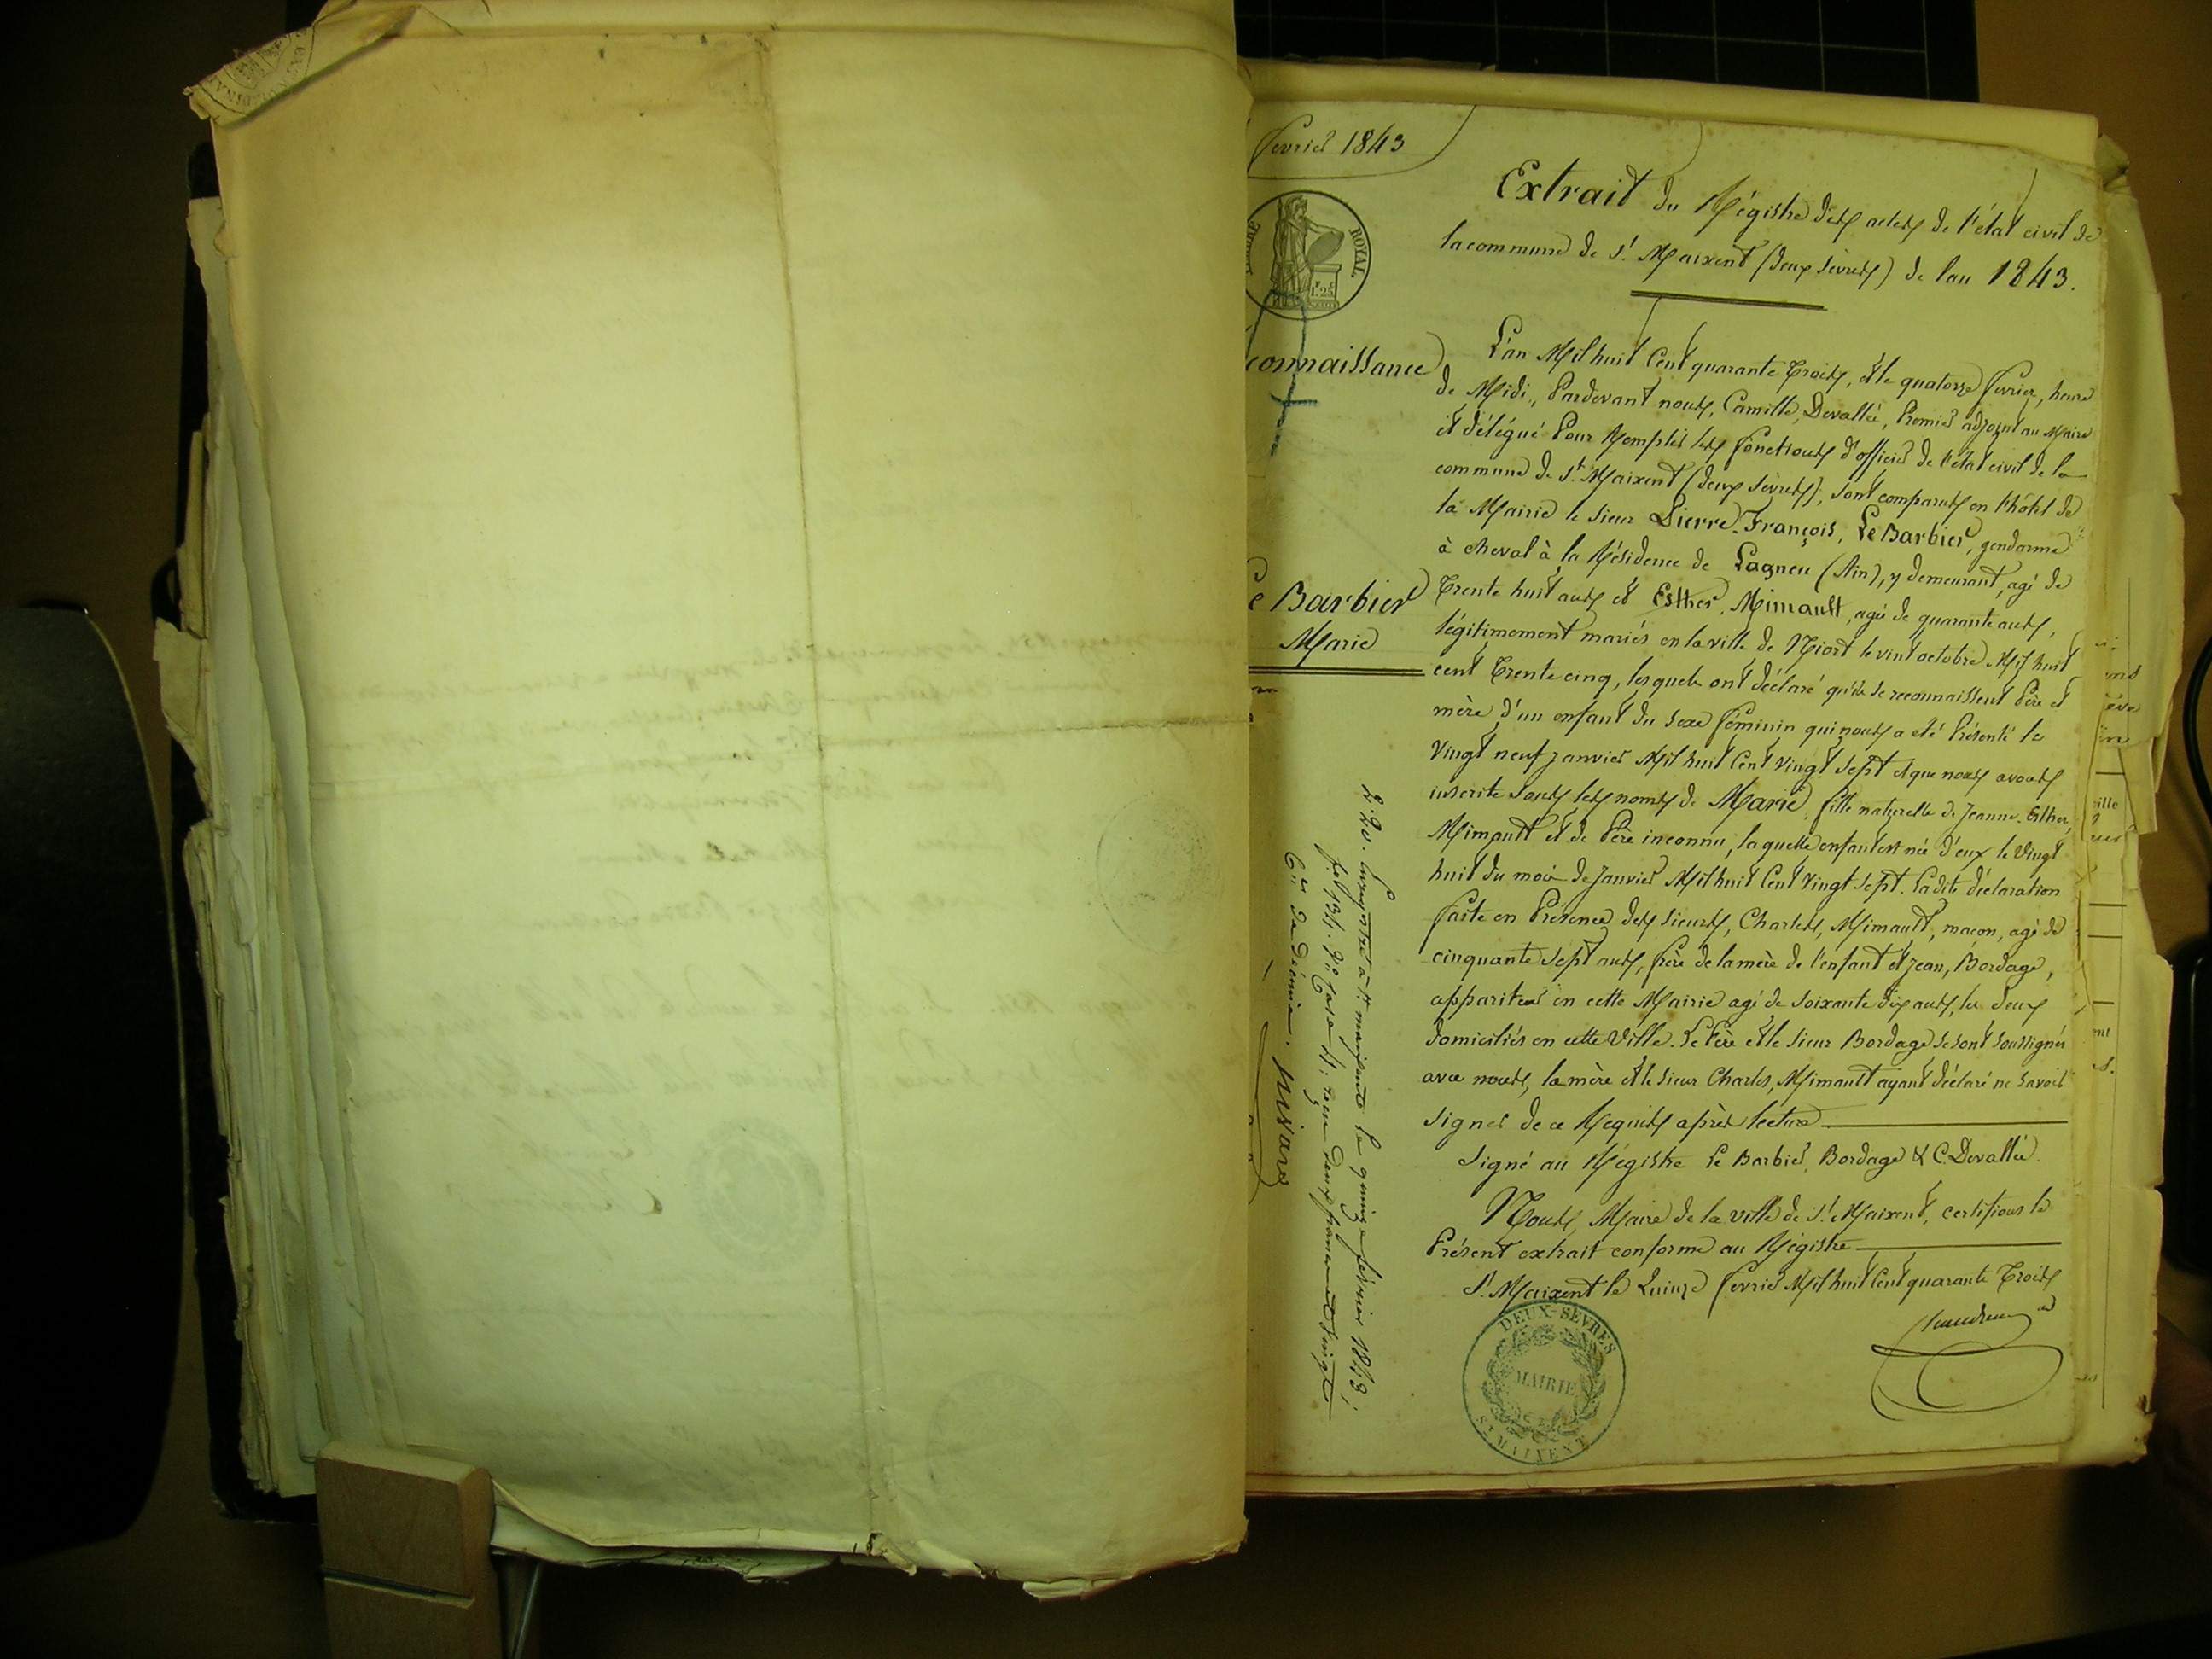 fevrier 1843
ROYAL
1.25
Extrait du Régistre des actes de l'état civil de
la commune de St Maixent (deux sèvres) de l'an 1843.
connaissance
Le Barbier
Marie
L'an Mil huit Cent quarante Trois, et le quatorze fevrier, heure
de Midi, Pardevant nous, Camille, Devallée, Premier adjoint au Maire
et délégué Pour Remplir les fonctions d'officier de l'état civil de la
commune de St Maixent (deux Sèvres), sont comparus en l'hôtel de
la Mairie le sieur Pierre-François, Le Barbier, gendarme
à cheval à la Résidence de Lagneu (Ain), y demeurant, agé de
Trente huit ans et Esther, Mimault, agée de quarante ans,
légitimement mariés en la ville de Niort le vint octobre Mil huit
cent Trente cinq, lesquels ont déclaré qu'ils se reconnaissent Père et
mère d'un enfant du sexe féminin qui nous a été Présenté le
Vingt neuf janvier Mil huit Cent Vingt Sept et que nous avons
inscrite sous les noms de Marie, fille naturelle de Jeanne-Esther,
Mimault et de Père inconnu, laquelle enfant est née d'eux le Vingt
huit du mois de Janvier Mil huit Cent Vingt Sept. La dite déclaration
faite en Présence des sieurs, Charles, Mimault, maçon, agé de
cinquante Sept ans, frère de la mère de l'enfant et Jean, Bordage,
appariteur en cette Mairie agé de soixante dix ans, les deux
domiciliés en cette Ville. Le Père et le sieur Bordage se sont soussignés
avec nous, la mère et le sieur Charles, Mimault ayant déclaré ne savoir
signer de ce Requis après lecture
Signé au Régistre Le Barbier, Bordage & C. Devallée.
Nous, Maire de la ville de St Maixent, certifions le
Présent extrait conforme au Régistre
St Maixent le Quinze fevrier Mil huit Cent quarante Trois
DEUX-SEVRES
MAIRIE
ST MAIXENT
2.20. Enregistré à St maixent le quinze février 1843,
fo 131. Vo case 4; reçu deux francs et vingt
cmes de décime.